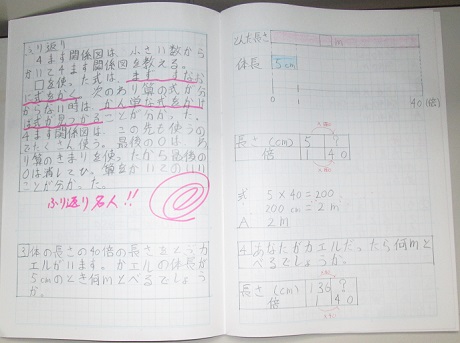 ふり返り
4ます関係図は、小さい数から
かいて4ます関係図を教える。
□を使った式は、まず、すなお
に式をかく。次のあり算の式が分
からない時は、かん単な式をかけ
ば式が見つかることが分かった。
4ます関係図は、この先も使うの
でたくさん使う。最後の0は、わ
り算のきまりを使ったから最後の
0は消してひ、筆算かいていいり
ことが分かった。
ふり返り名人!!
3 体の長さの40倍の長さをとぶカ
エルがいます。カエルの体長が
5cmのとき何mとべるでしょう
か。
とんだ長さ
□m
体長
5cm
0 1 40(倍)
長さ(cm) 5 ?
倍 1 40
式 5×40=200
200cm=2m
A 2m
4 あなたがカエルだったら何mと
べるでしょうか。
長さ(cm) 136 ?
倍 1 40